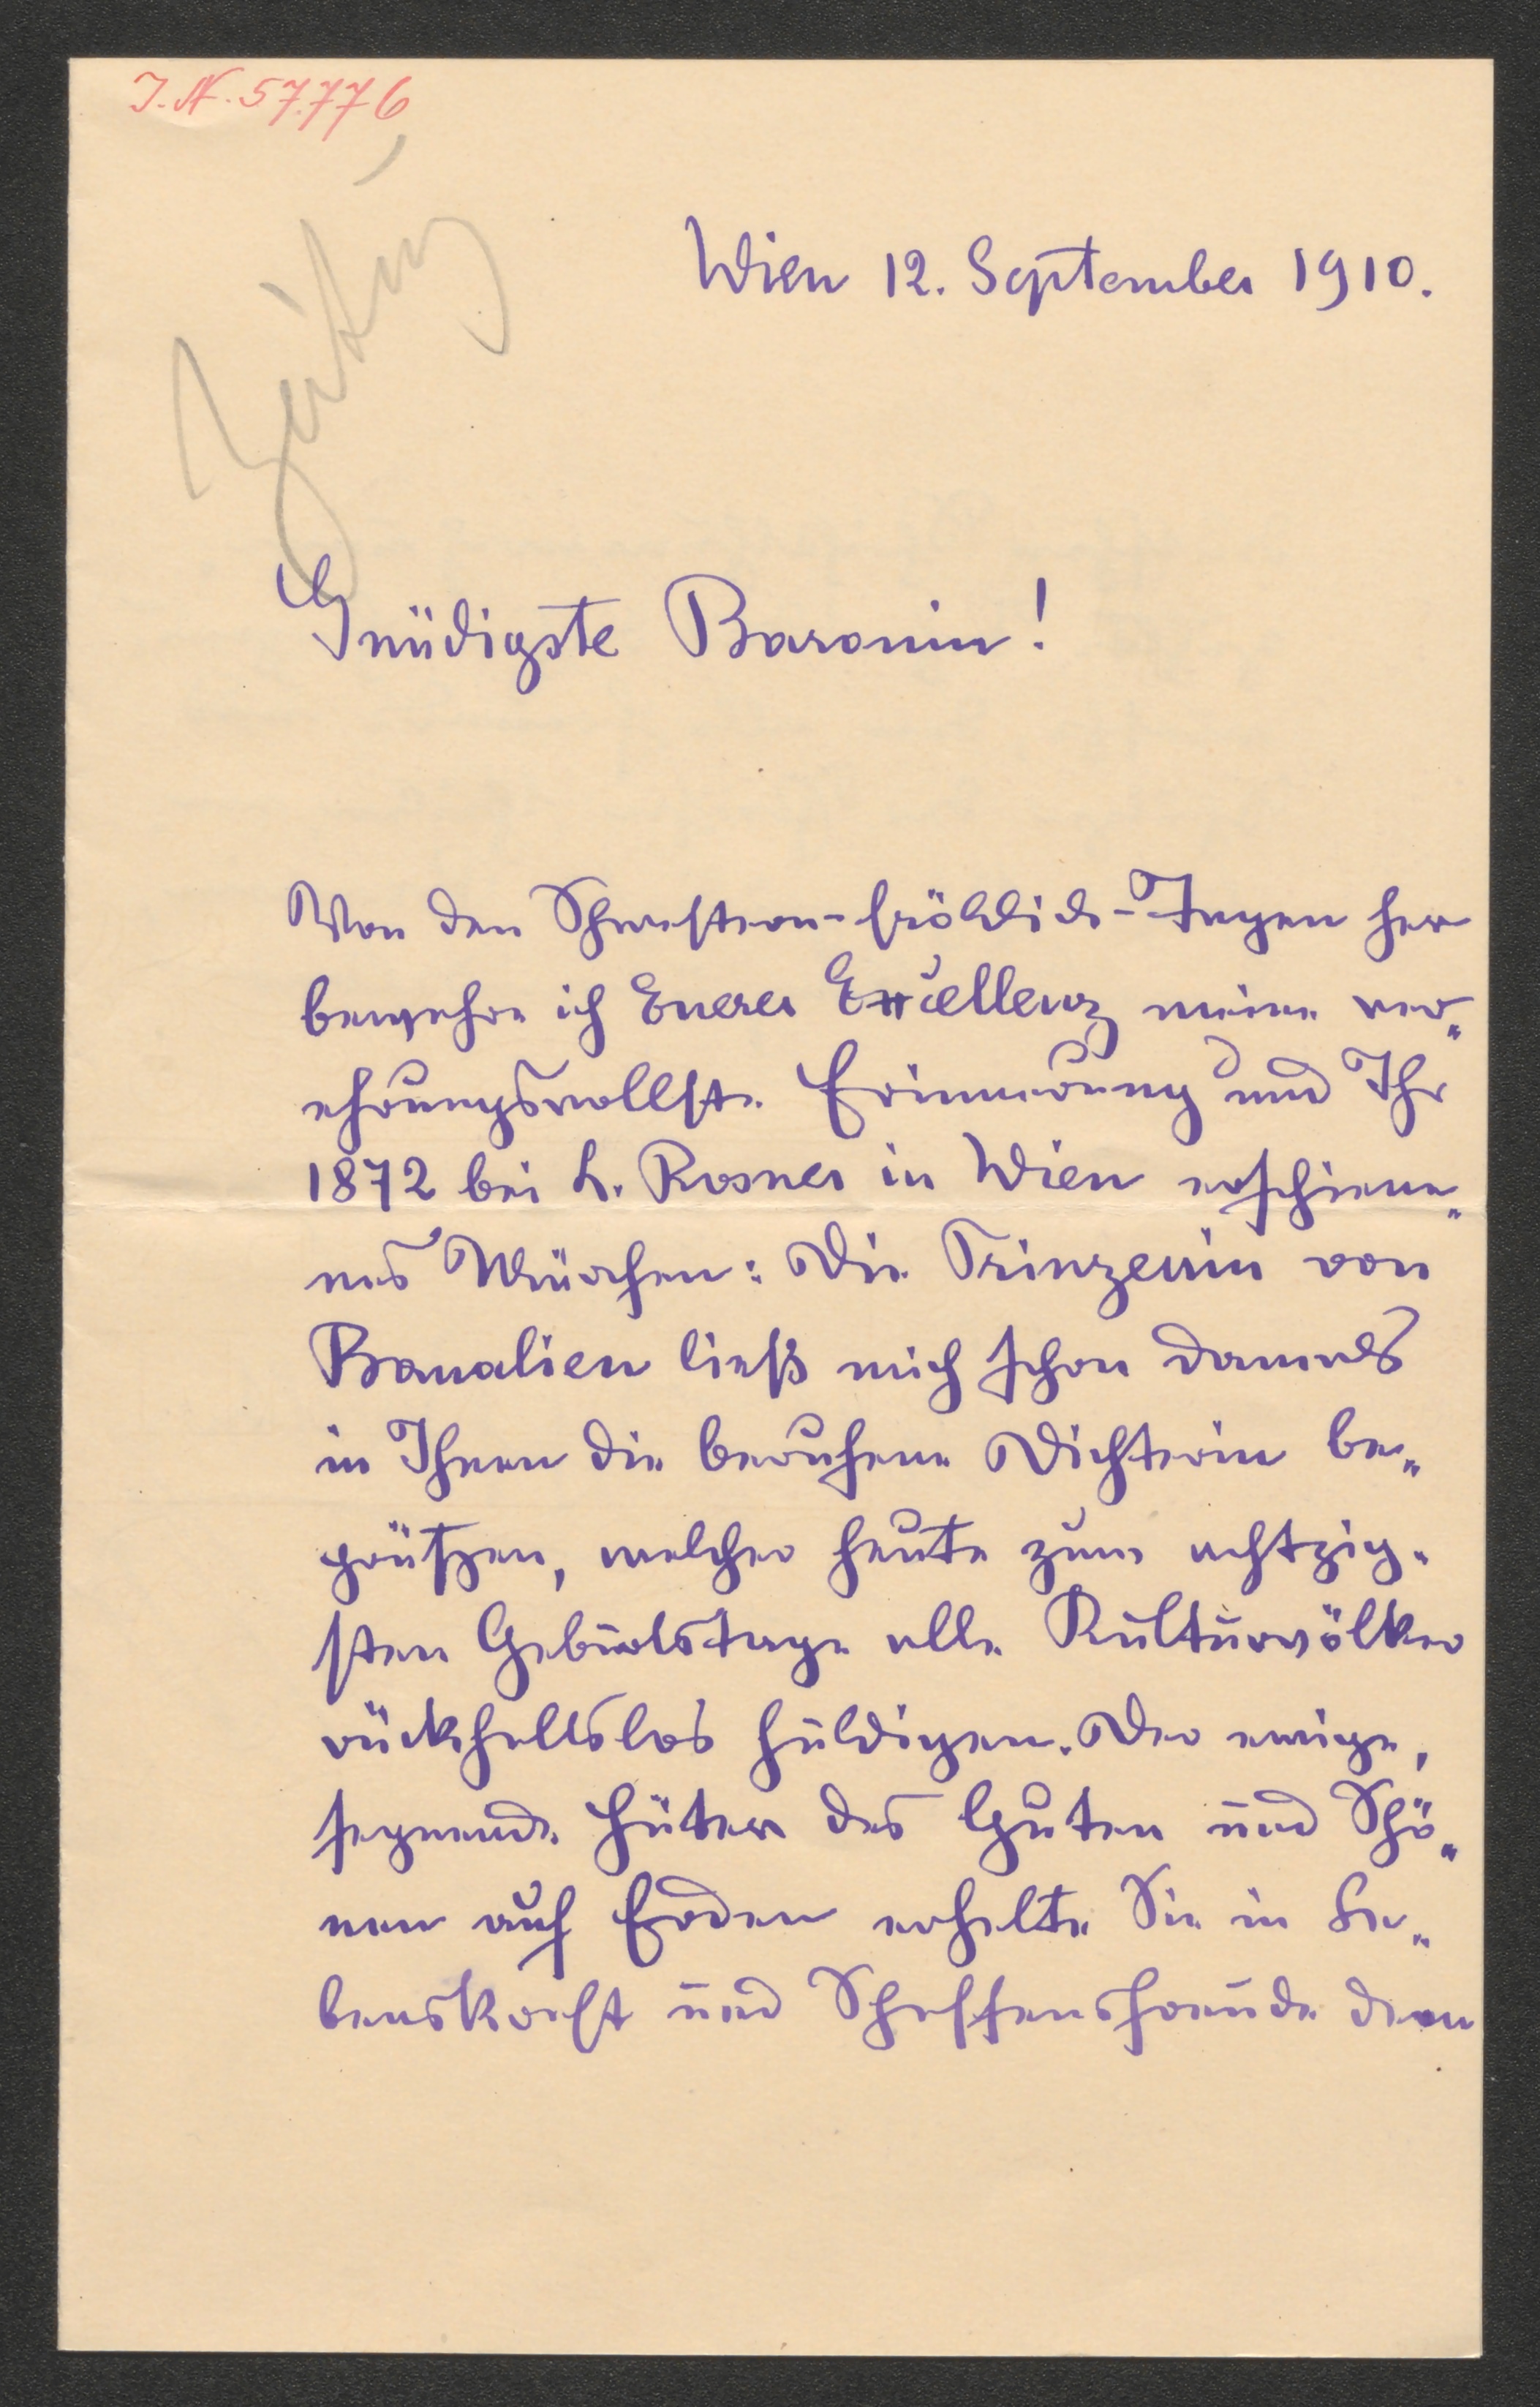 I.N. 57.776
Wien 12. September 1910.
Gnädigste Baronin!
Von den Schwestern-Fröhlich-Tagen her
bewahre ich Euerer Excellenz meine ver„
ehrungsvollste Erinnerung und Ihr
1872 bei L. Rosner in Wien erschiene„
nes Märchen: Die Prinzessin von
Banalien ließ mich schon damals
in Ihnen die berufene Dichterin be„
grüßen, welcher heute zum achtzig„
sten Geburtstage alle Kulturvölker
rückhaltslos huldigen. Der ewige,
segnende Hüter des Guten und Schö„
nen auf Erden erhalte Sie in Le„
benskraft und Schaffensfreude dem